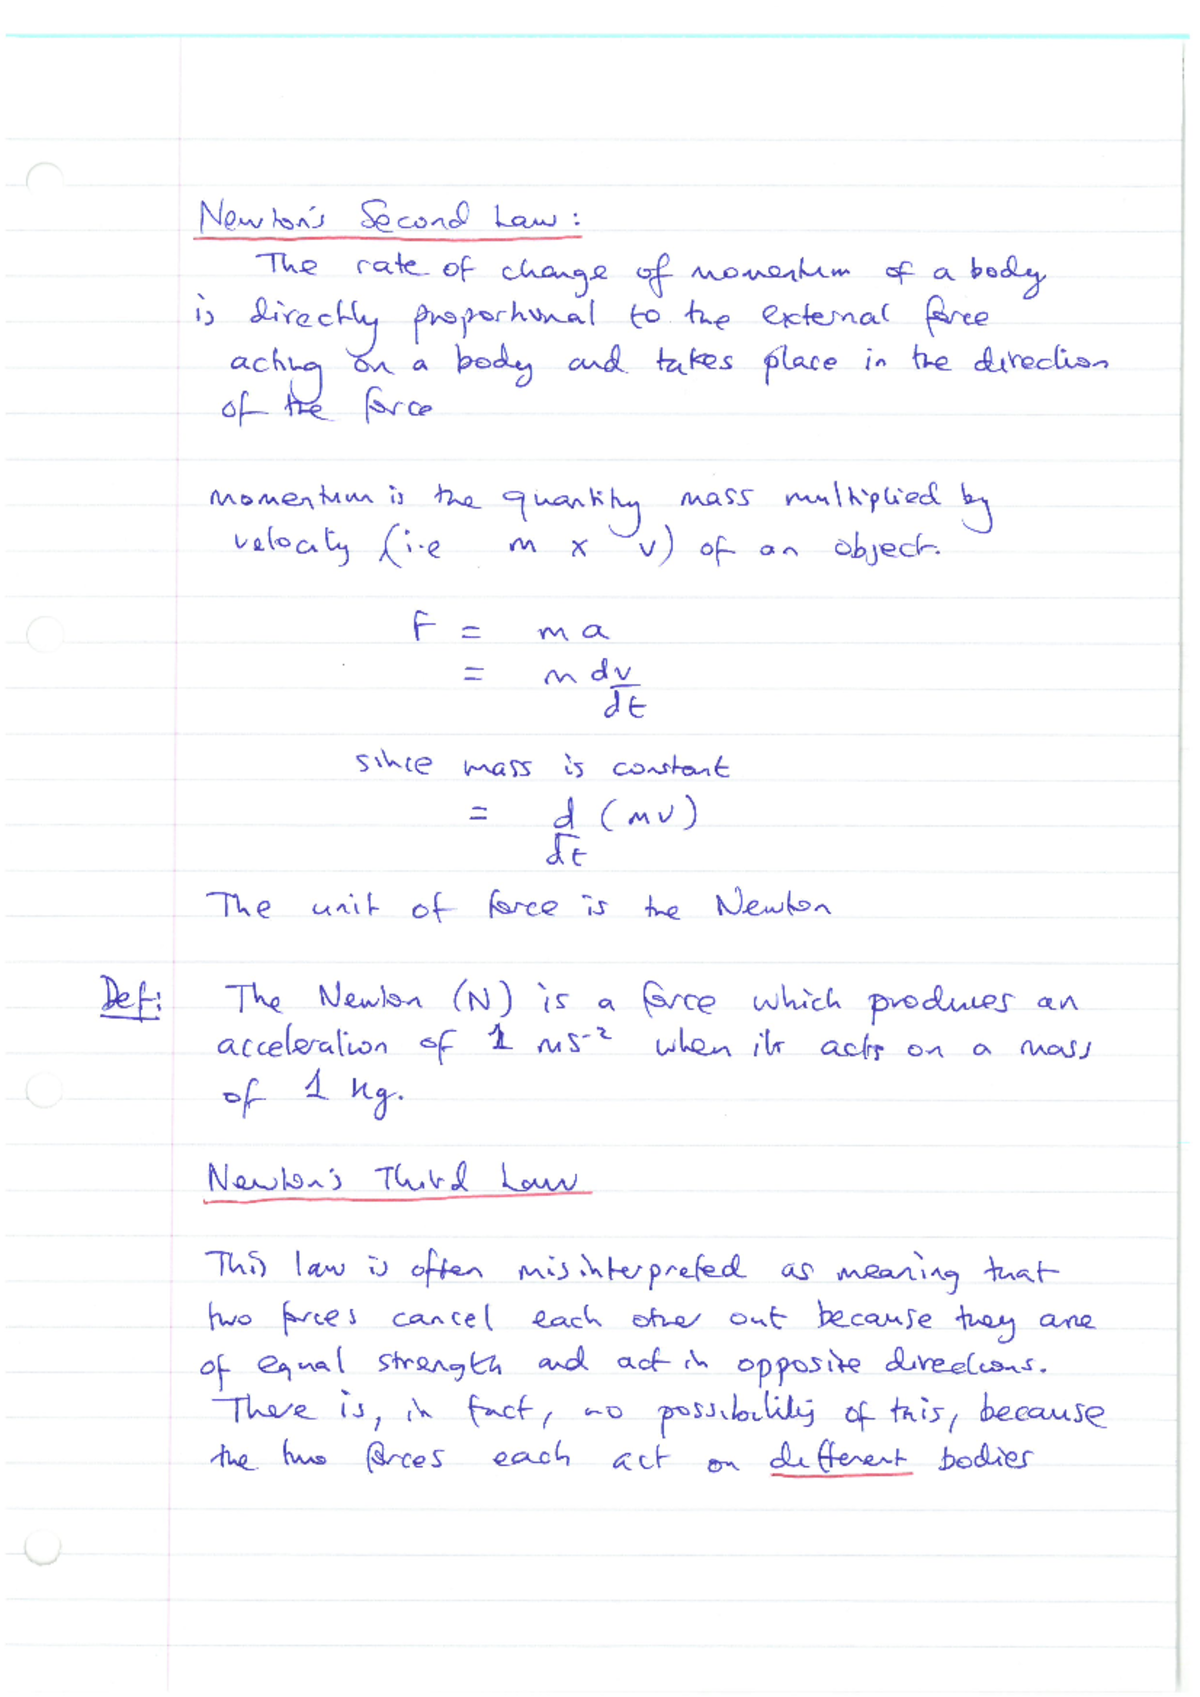 Newton's Second Law:
The rate of change of momentum of a body
is directly proportional to the external force
acting on a body and takes place in the direction
of the force
momentum is the quantity mass multiplied by
velocity (i.e m x v) of an object.
F = ma
= m dv
dt
since mass is constant
= d (mv)
dt
The unit of force is the Newton
Def: The Newton (N) is a force which produces an
acceleration of 1 ms⁻² when it acts on a mass
of 1 kg.
Newton's Third Law
This law is often misinterpreted as meaning that
two forces cancel each other out because they are
of equal strength and act in opposite directions.
There is, in fact, no possibility of this, because
the two forces each act on different bodies